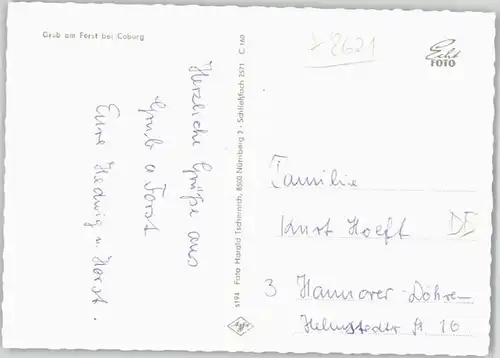 Grub am Forst bei Coburg
Herzliche Grüße aus
Grub a Forst
Eure Hedwig u. Horst.
5194 Foto Harald Tschernich, 8500 Nürnberg 2 - Schließfach 2571 C 160
Agfa
2621
Echt
FOTO
Familie
Kurt Hoeft DE
3 Hannover-Döhren
Helmstedter St 16